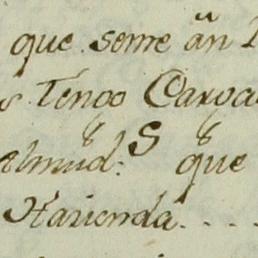 que seme an
s Tengo Carga
almud.s que
Hazienda....